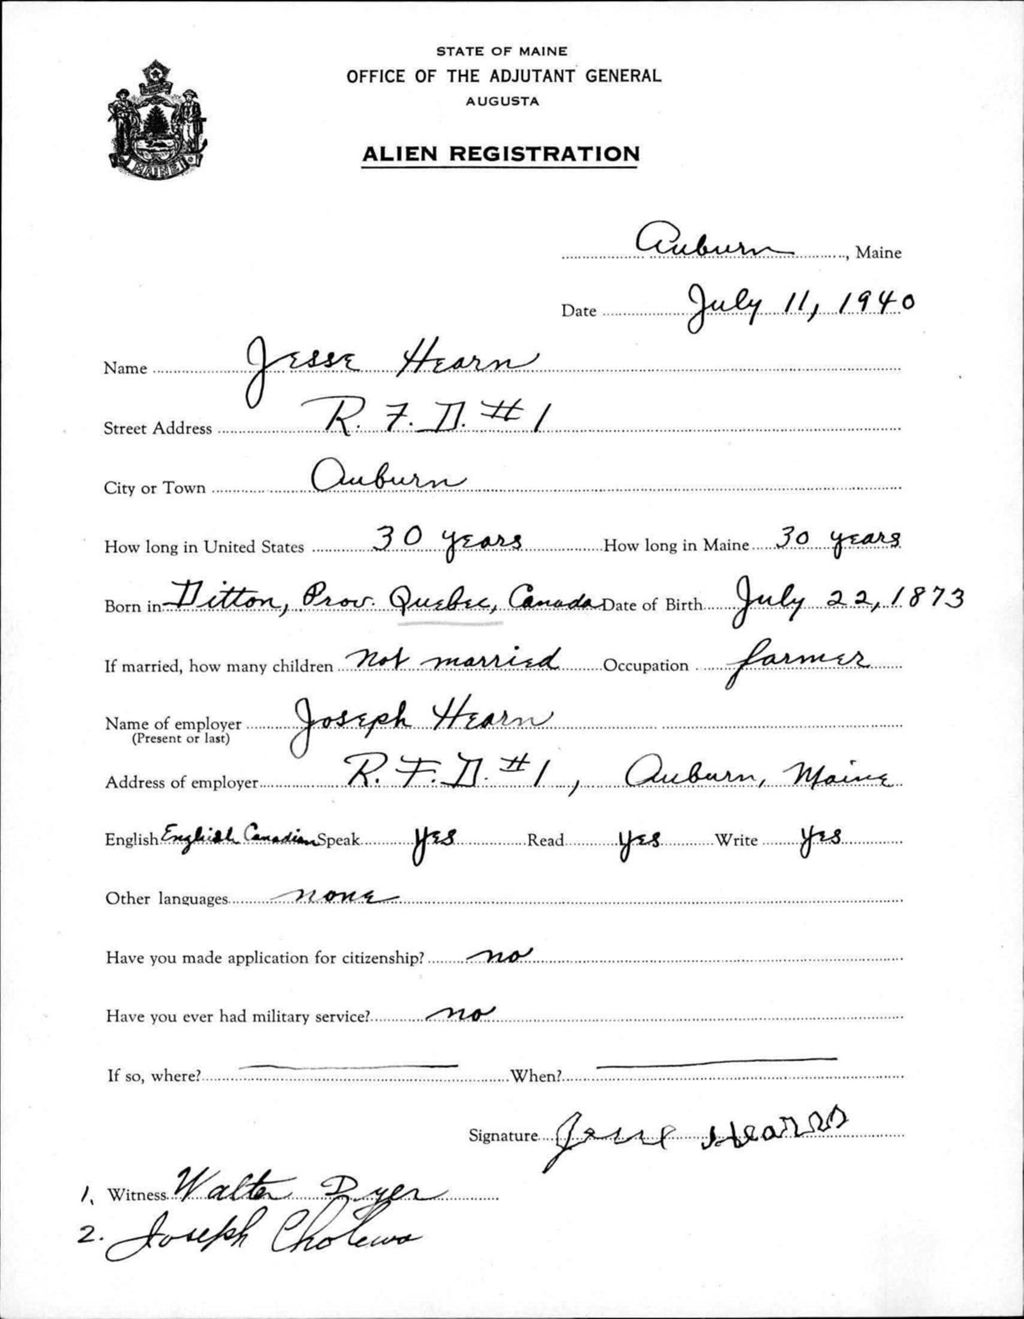 STATE OF MAINE
OFFICE OF THE ADJUTANT GENERAL
AUGUSTA
ALIEN REGISTRATION
MAINE
Auburn, Maine
Date July 11, 1940
Name Jesse Hearn
Street Address R. F. D. #1
City or Town Auburn
How long in United States 30 years How long in Maine 30 years
Born in Ditton, Prov. Quebec, Canada Date of Birth July 22, 1873
If married, how many children not married Occupation farmer
Name of employer Joseph Hearn
(Present or last)
Address of employer R. F. D. #1, Auburn, Maine
English English Canadian Speak yes Read yes Write yes
Other languages none
Have you made application for citizenship? no
Have you ever had military service? no
If so, where? When?
Signature Jesse Hearn
1. Witness Walter Dyer
2. Joseph Cholewa